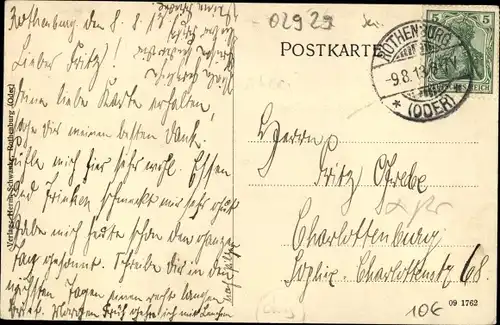 Rothenburg den 8.8.13
Lieber Fritz!
Deine liebe Karte erhalten,
sage Dir meinen besten Dank.
Fühle mich hier sehr wohl. Essen
und Trinken schmeckt mir sehr gut
Habe mich heute schon den ganzen
Tag gesonnt. Schreibe Dir in den
nächsten Tagen einen recht langen
Morgen früh gehe ich mit
02929
POSTKARTE
ROTHENBURG
-9.8.13
* (ODER)
5 5
DEUTSCHES REICH
Herrn
Fritz
Charlottenburg
Sophie-Charlottenstr 68.
09 1762
10€
Verlag: Herm. Schwandke, Rothenburg (Oder)